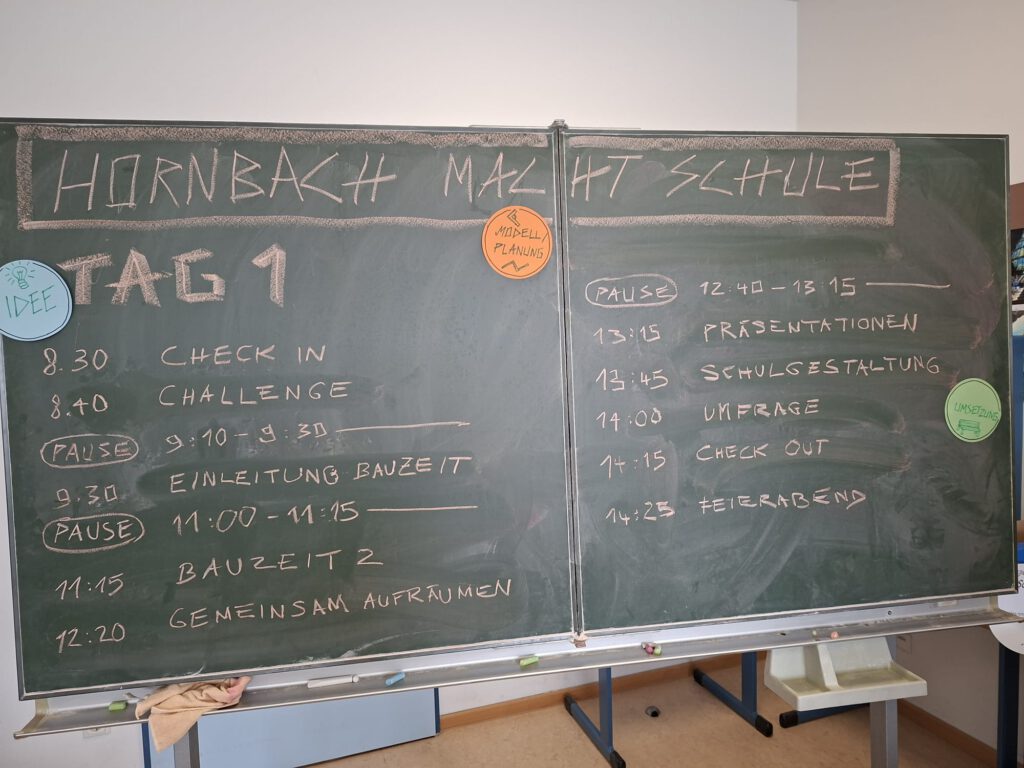 HORNBACH MACHT SCHULE
TAG 1
IDEE
MODELL/
PLANUNG
8.30 CHECK IN
8.40 CHALLENGE
PAUSE 9:10 - 9:30
9.30 EINLEITUNG BAUZEIT
PAUSE 11:00 - 11:15
11:15 BAUZEIT 2
12:20 GEMEINSAM AUFRÄUMEN
PAUSE 12:40 - 13:15
13:15 PRÄSENTATIONEN
13:45 SCHULGESTALTUNG
14:00 UMFRAGE
14:15 CHECK OUT
14:25 FEIERABEND
UMSETZUNG